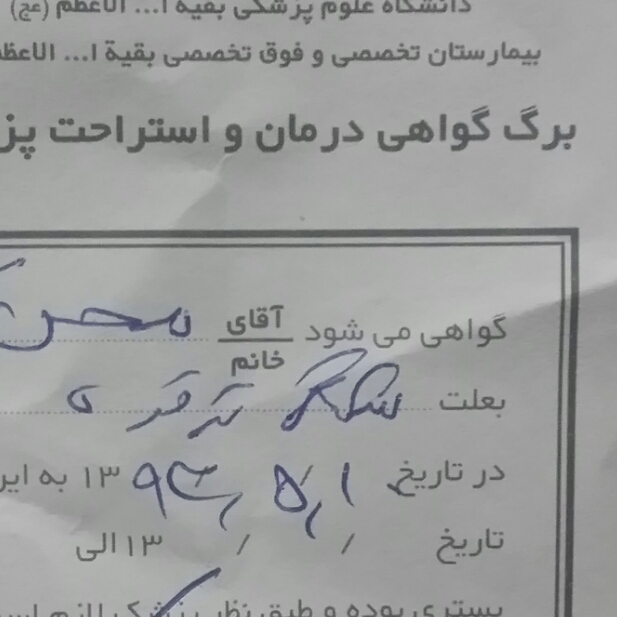 دانشگاه علوم پزشکی بقیه ا... الاعظم (عج)
بیمارستان تخصصی و فوق تخصصی بقیة ا... الاعظ
برگ گواهی درمان و استراحت پز
گواهی می شود آقای
خانم
بعلت شکستگی ترقوه
در تاریخ ۱/۵/۱۳۹۳ به ایر
تاریخ / / ۱۳ الی
بستری بوده و طبق نظر پزشک لازم اس